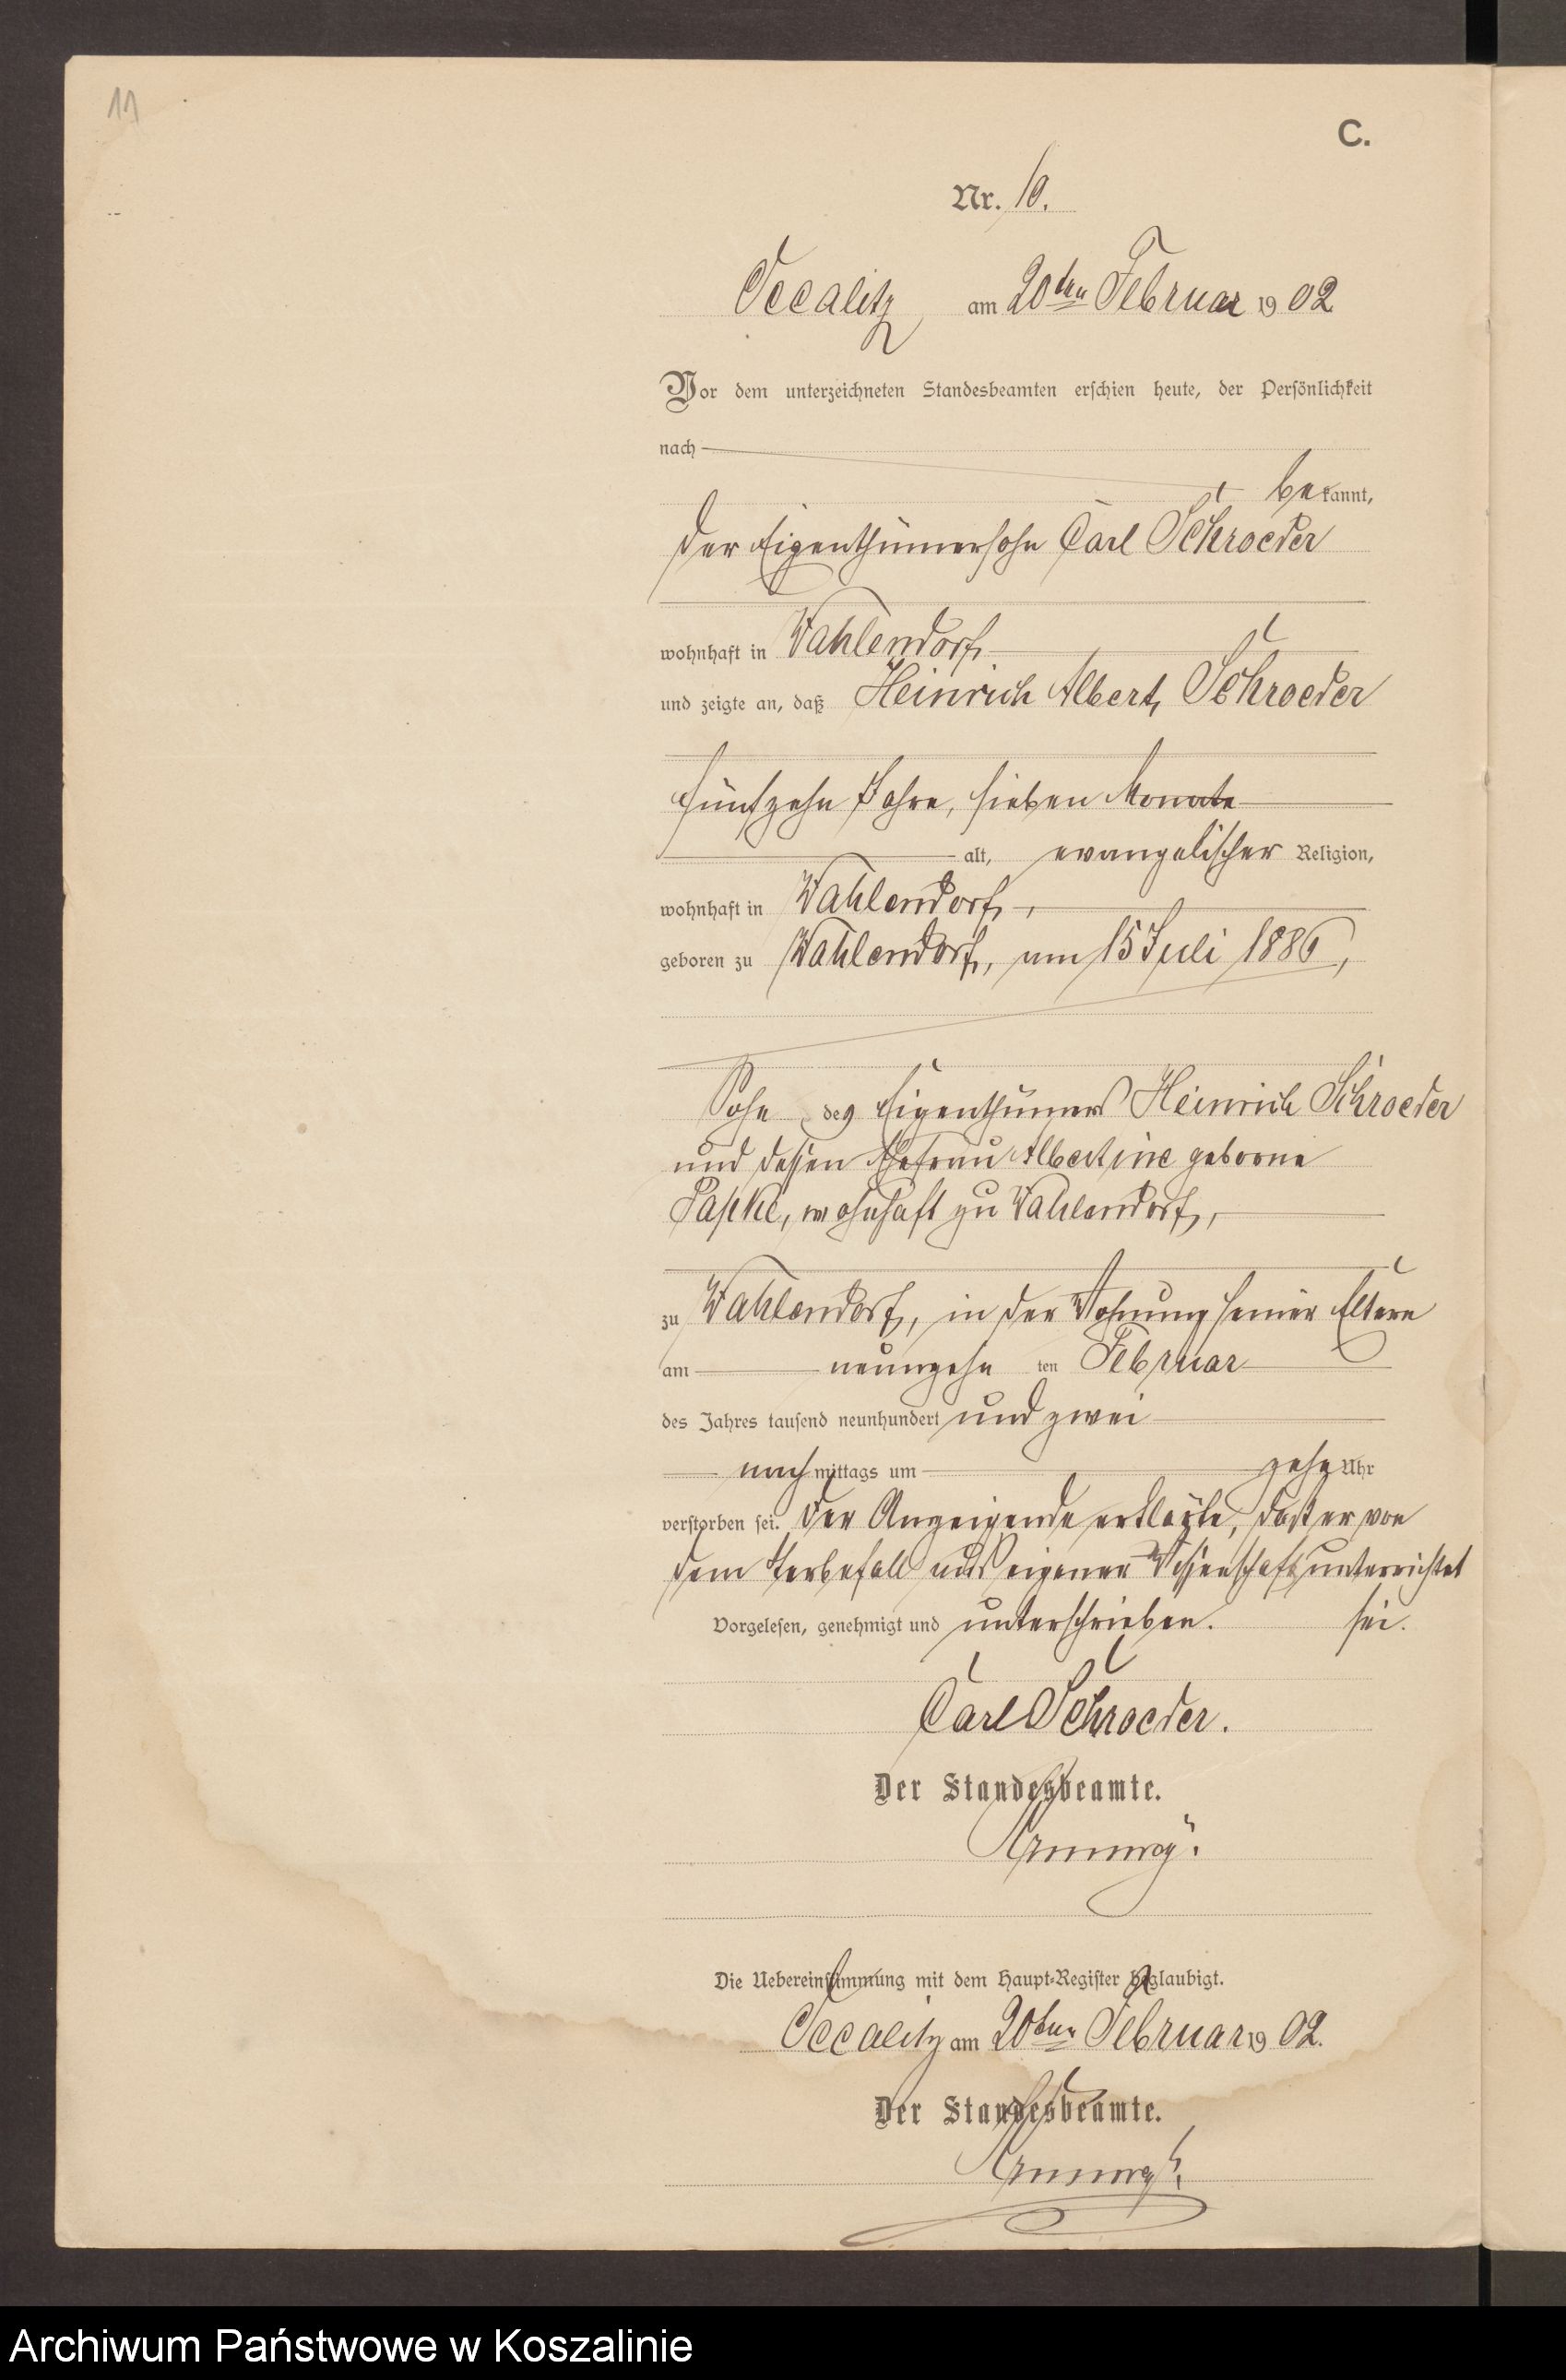 11
C.
Nr. 10.
Occalitz am 20ten Februar 1902
Vor dem unterzeichneten Standesbeamten erschien heute, der Persönlichkeit
nach
bekannt,
der Eigenthümersohn Carl Schroeder
wohnhaft in Wahlendorf
und zeigte an, daß Heinrich Albert, Schroeder
fünfzehn Jahre, sieben Monate
alt, evangelischer Religion,
wohnhaft in Wahlendorf,
geboren zu Wahlendorf, am 15 Juli 1886,
Sohn des Eigenthümers Heinrich Schroeder
und dessen Ehefrau Albertine geborne
Papke, wohnhaft zu Wahlendorf,
zu Wahlendorf, in der Wohnung seiner Eltern
am neunzehn ten Februar
des Jahres tausend neunhundert und zwei
nachmittags um zehn Uhr
verstorben sei. Der Anzeigende erklärte, daß er von
dem Sterbefall aus eigener Wissenschaft unterrichtet
sei.
Vorgelesen, genehmigt und unterschrieben.
Carl Schroeder.
Der Standesbeamte.
Die Uebereinstimmung mit dem Haupt-Register beglaubigt.
Occalitz am 20ten Februar 1902.
Der Standesbeamte.
Archiwum Państwowe w Koszalinie